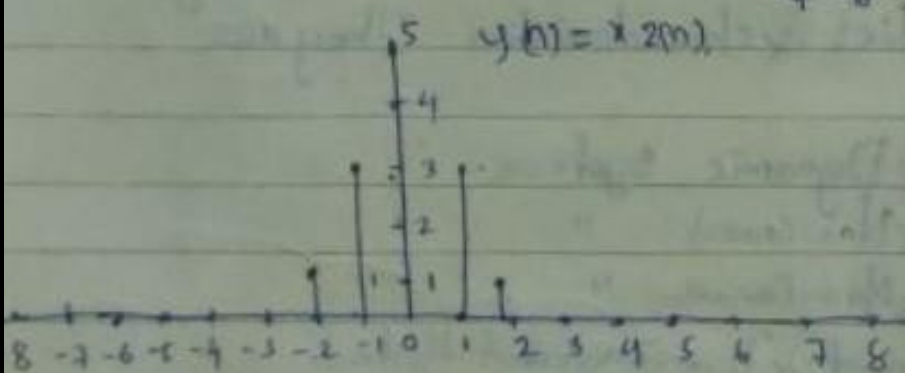 5 y(n) = x 2(n)
4
3
2
1 1
8 -7 -6 -5 -4 -3 -2 -1 0 1 2 3 4 5 6 7 8